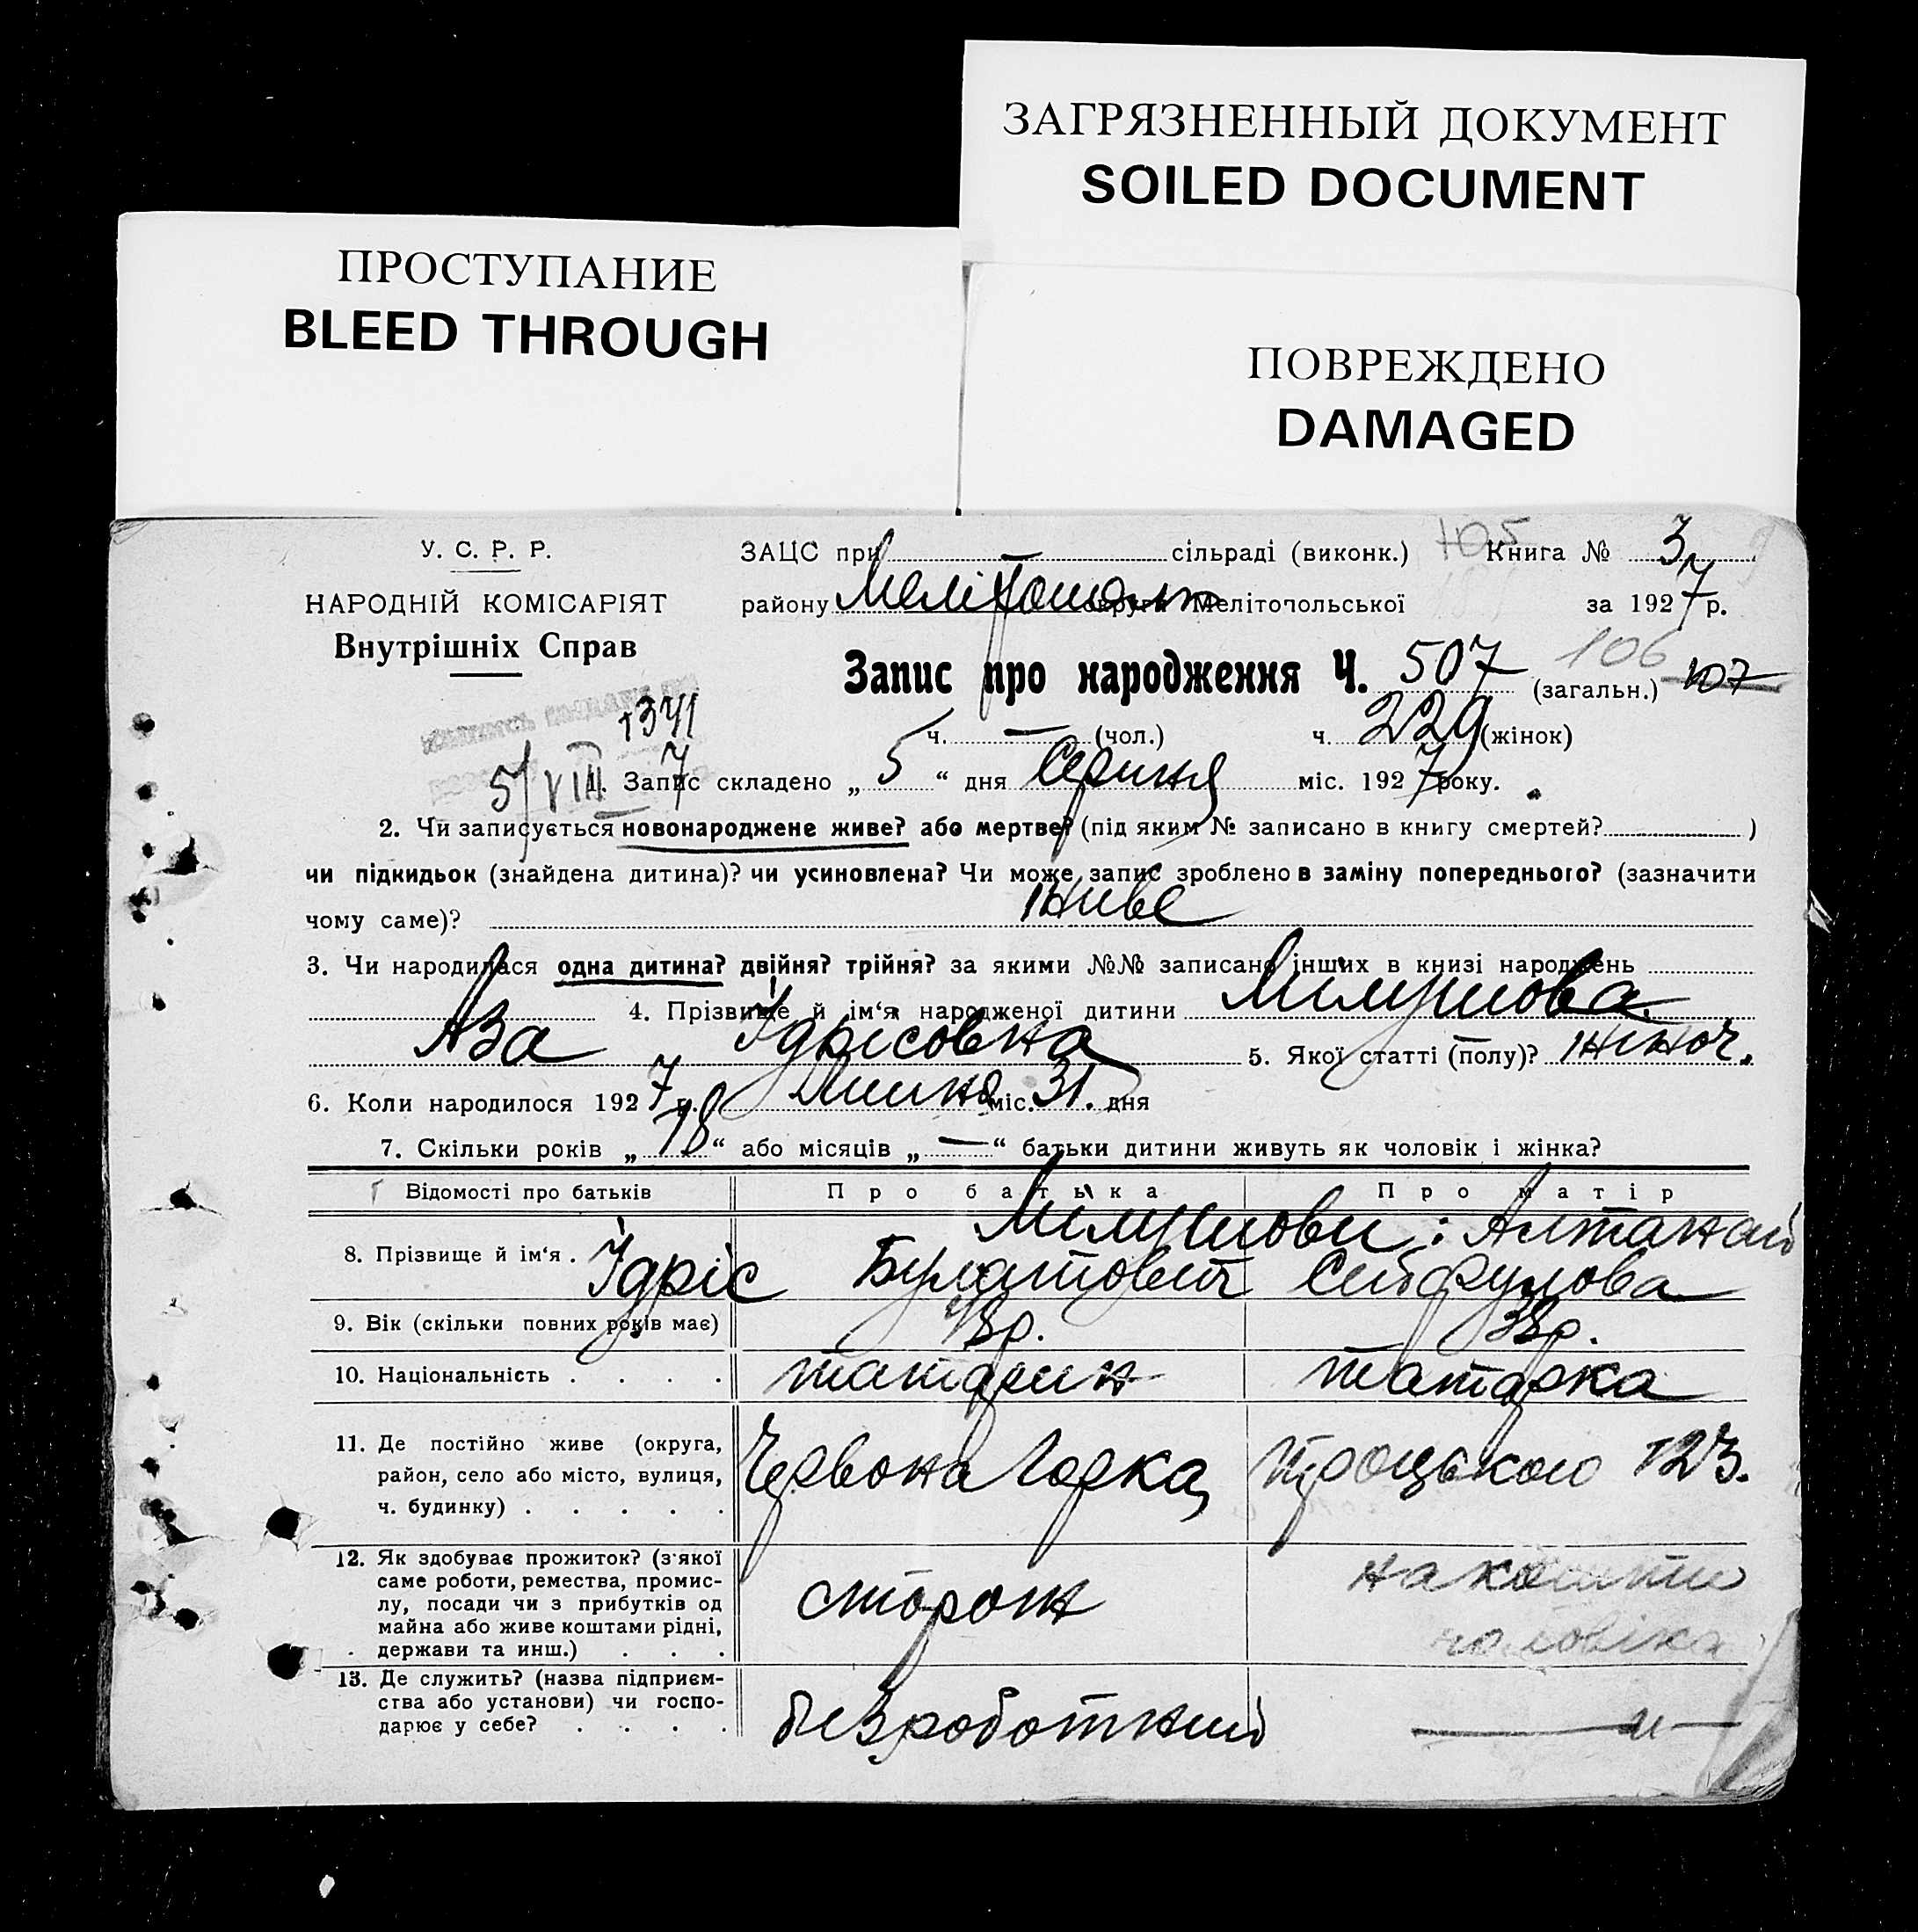 ЗАГРЯЗНЕННЫЙ ДОКУМЕНТ
SOILED DOCUMENT
ПРОСТУПАНИЕ
BLEED THROUGH
ПОВРЕЖДЕНО
DAMAGED
У. С. Р. Р.
НАРОДНІЙ КОМІСАРІЯТ
Внутрішніх Справ
ЗАЦС при — сільраді (виконк.) 105 Книга № 3
району Мелітополь округи Мелітопольської за 1927 р.
Запис про народження Ч. 507 (загальн.) 106 107
ч. — (чол.) ч. 229 (жінок)
1341
5/VIII 7
1. Запис складено „ 5 “ дня Серпня міс. 1927 року.
2. Чи записується новонароджене живе? або мертве? (під яким № записано в книгу смертей? )
чи підкидьок (знайдена дитина)? чи усиновлена? Чи може запис зроблено в заміну попереднього? (зазначити
чому саме)? живе
3. Чи народилася одна дитина? двійня? трійня? за якими №№ записано інших в книзі народжень
4. Прізвище й ім‘я народженої дитини
Аза Ідрісовна 5. Якої статті (полу)? жіноч.
6. Коли народилося 1927 р. Липня міс. 31. дня
7. Скільки років „ 18 “ або місяців „ — “ батьки дитини живуть як чоловік і жінка?
Відомості про батьків Про батька Про матір
8. Прізвище й ім‘я . Ідріс Булатович Алтанай Сейфулова
9. Вік (скільки повних років має) 43р. 38р.
10. Національність . . . . татарин татарка
11. Де постійно живе (округа,
район, село або місто, вулиця,
ч. будинку) . . . . .
Червона Горка, Троцького 123.
12. Як здобуває прожиток? (з‘якої
саме роботи, ремества, промис-
лу, посади чи з прибутків од
майна або живе коштами рідні,
держави та инш.) . . .
сторож
на кошти
чоловіка
13. Де служить? (назва підприєм-
ства або установи) чи госпо-
дарює у себе? . . . .
безроботний — „ —